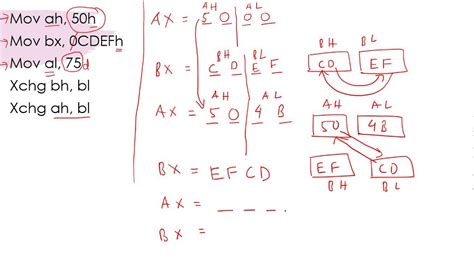 Mov ah, 50h
Mov bx, 0CDEFh
Mov al, 75d
Xchg bh, bl
Xchg ah, bl
AH AL
AX = 5 0 0 0
BH BL
BX = C D E F
AH AL
AX = 5 0 4 B
BX = E F C D
AX = _ _ _ .
BX =
BH BL
CD EF
AH AL
50 4B
EF CD
BH BL